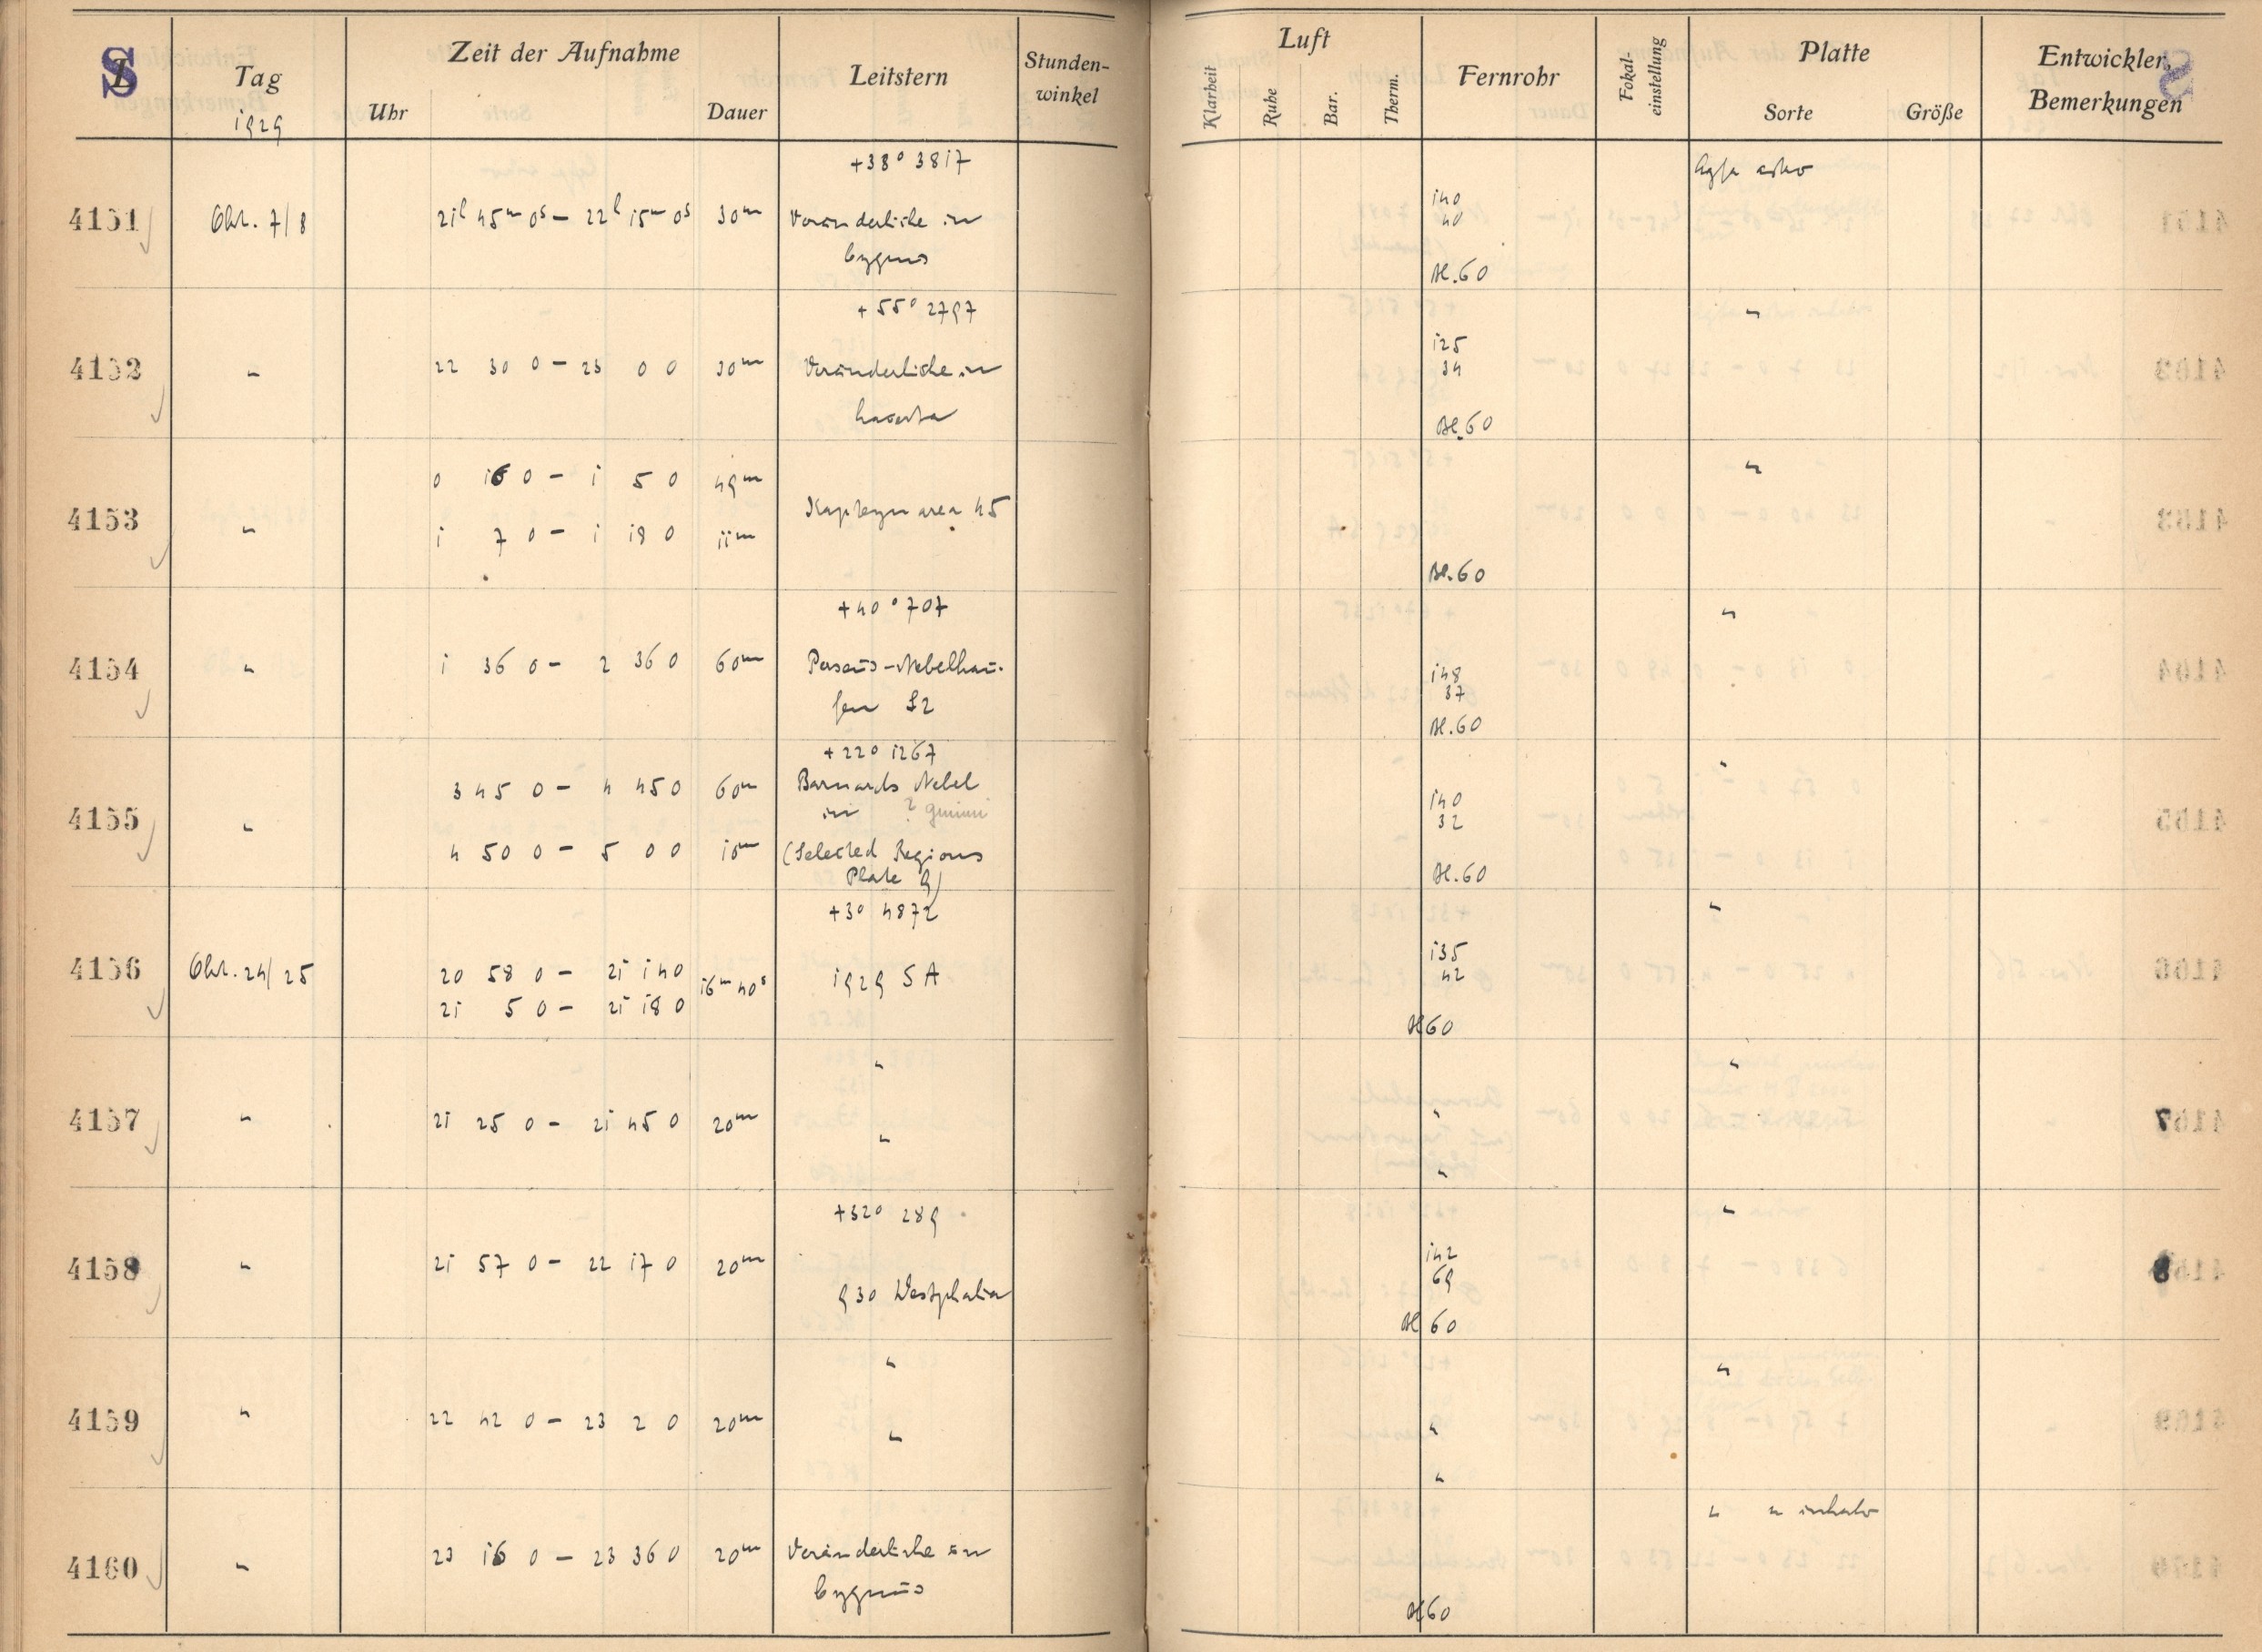 S
Tag
1929
Zeit der Aufnahme
Uhr
Dauer
Leitstern
Stunden-
winkel
Luft
Klarheit
Ruhe
Bar.
Therm.
Fernrohr
Fokal-
einstellung
Platte
Sorte
Größe
Entwickler,
Bemerkungen
+38° 3817
Agfa astro
4151 Okt. 7/8 21h 45m 0s – 22h 15m 0s 30m Veränderliche in
Cygnus
140
40
Bl. 60
+55° 2797
"
4152 " 22 30 0 – 23 0 0 30m Veränderliche in
Lacerta
125
34
Bl. 60
0 16 0 – 1 5 0 49m
"
4153 " Kapteyn area 45
1 7 0 – 1 18 0 11m
Bl. 60
+40° 707
"
4154 " 1 36 0 – 2 36 0 60m Perseus-Nebelhau-
fen S2
148
37
Bl. 60
+22° 1267
"
3 45 0 – 4 45 0 60m Barnards Nebel
4155 " in ? gemini
4 50 0 – 5 0 0 10m (Selected Regions
Plate 9)
140
32
Bl. 60
+3° 4872
"
4156 Okt. 24/25 20 58 0 – 21 1 40 16m 40s 1929 SA
21 5 0 – 21 18 0
135
42
Bl 60
"
"
4157 " 21 25 0 – 21 45 0 20m "
"
"
+32° 289
"
4158 " 21 57 0 – 22 17 0 20m
930 Westphalia
142
69
Bl 60
"
"
4159 " 22 42 0 – 23 2 0 20m "
"
"
" "
4160 " 23 16 0 – 23 36 0 20m Veränderliche in
Cygnus
Bl 60